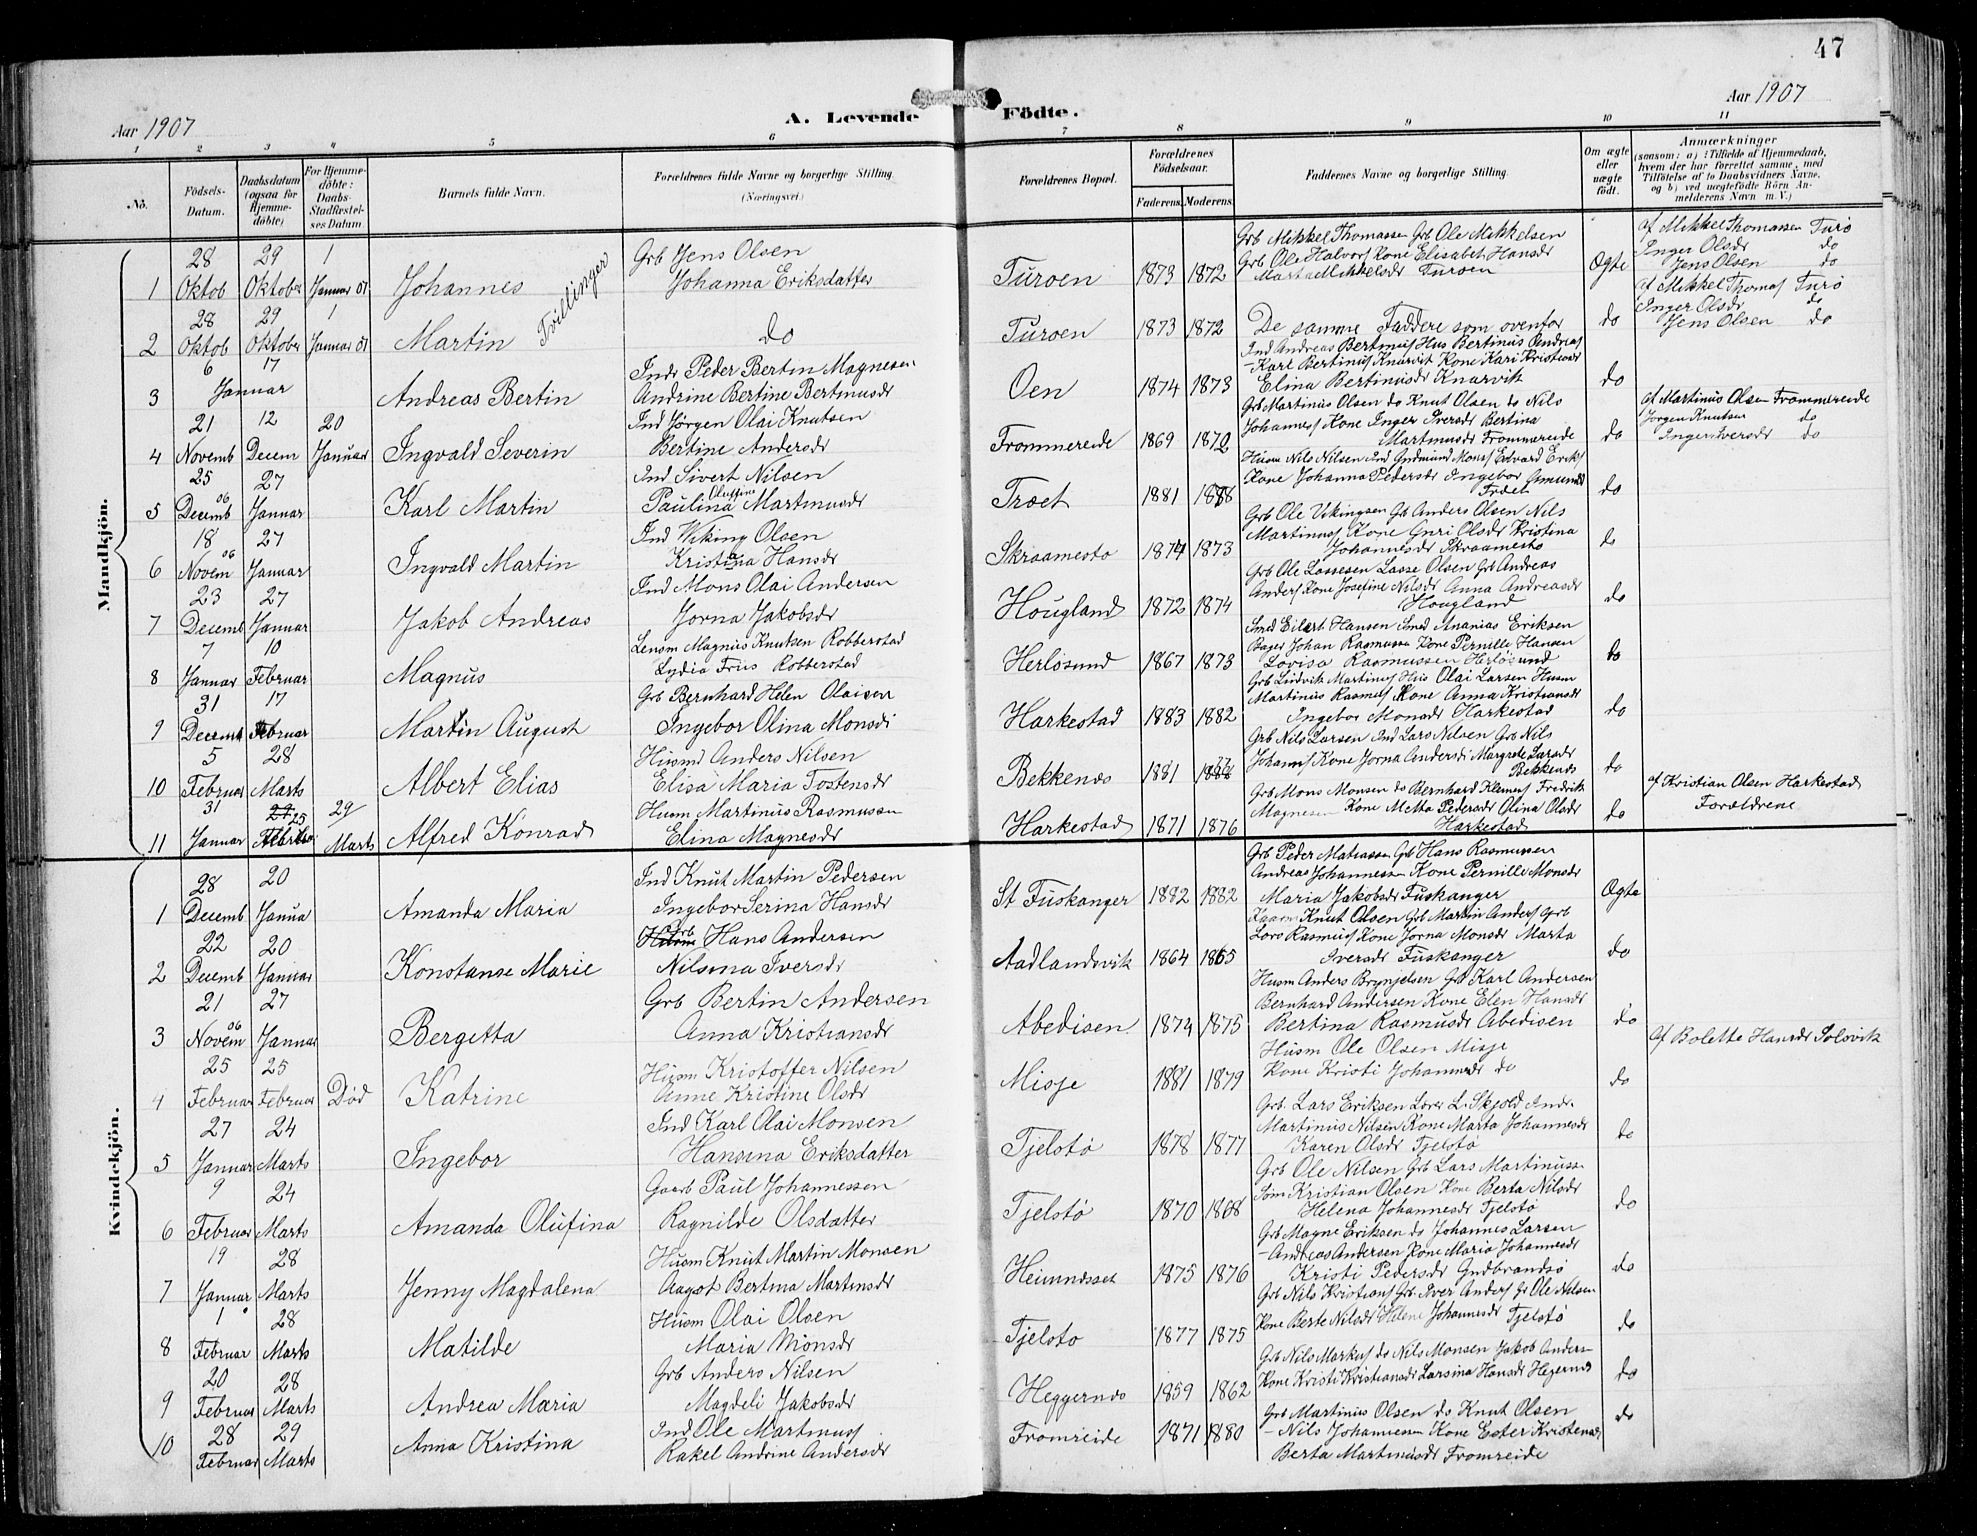 47
Aar 1907
A. Levende Födte.
Aar 1907
1 2 3 4 5 6 7 8 9 10 11
No.
Födsels-Datum.
Daabsdatum (ogsaa for Hjemme-döbte)
For Hjemme-döbte: Daabs-Stadfæstel-ses Datum
Barnets fulde Navn.
Forældrenes fulde Navne og borgerlige Stilling. (Næringsvei)
Forældrenes Bopæl.
Forældrenes Födselsaar.
Faderens. Moderens.
Faddernes Navne og borgerlige Stilling.
Om ægte eller uægte födt.
Anmærkninger
(saasom: a) i Tilfælde af Hjemmedaab, hvem der har forrettet samme, med Tilföielse af to Daabsvidners Navne, og b) ved uægtefödte Börn An-melderens Navn m. V.)
Mandkjön.
1 28 Oktob 29 Oktober 1 Januar 07 Johannes Tvillinger
Grb Jens Olsen
Johanna Eriksdatter
Turoen 1873 1872
Grb Mikkel Thomassen Grb Ole Mikkelsen
Grb Ole Halvors Kone Elisabet Hansdr
Marta Mikkelsdr Turoen
Ægte
af Mikkel Thomassen Turö
Inger Olsdr do
Jens Olsen do
2 28 Oktob 29 Oktober 1 Januar 07 Martin
do
Turoen 1873 1872
De samme Faddere som ovenfor
do
af Mikkel Thomas Turö
Inger Olsdr do
Jens Olsen do
3 6 17 Januar Andreas Bertin
Indr Peder Bertin Magnesen
Andrine Bertine Bertinusdr
Oen 1874 1873
Ind Andreas Bertinus Hus Bertinus Andreas
Karl Bertinus Knarvik Kone Kari Kristensdr
Elina Bertinusdr Knarvik
do
4 21 Novemb 12 Decem 20 Januar Ingvald Severin
Ind Jörgen Olai Knutsen
Bertine Andersdr
Frommereide 1869 1872
Grb Martinus Olsen do Knut Olsen do Nils
Johannes Kone Inger Iversdr Bertina
Martinusdr Frommereide
do
af Martinus Olsen Frommereide
Jörgen Knutsen do
Inger Iversdr do
5 25 Decemb 06 27 Januar Karl Martin
Ind Sivert Nilsen
Paulina Oluffine Martinusdr
Træet 1881 1888
Husm Nils Nilsen Ind Gudmund Mons Edvard Eriks
Kone Johanna Pedersdr Ingebor
Træet
do
6 18 Novem 06 27 Januar Ingvald Martin
Ind Viking Olsen
Kristina Hansdr
Skraamesto 1874 1873
Grb Ole Vikingsen Gb Anders Olsen Nils
Martinus Kone Guri Olsdr Kristina
Johannesdr Skraamesto
do
7 23 Decemb 27 Januar Jakob Andreas
Ind Mons Olai Andersen
Jorna Jakobsdr
Hougland 1872 1874
Grb Ole Lassesen Lasse Olsen Grb Andreas
Anders Kone Josefine Nilsdr Anna Andreasdr
Hougland
do
8 7 Januar 10 Februar Magnus
Lensm Magnus Knutsen Robberstad
Lydia Friis Robberstad
Herlösund 1867 1873
Smed Eilert Hansen Smed Ananias Eriksen
Bager Johan Rasmussen Kone Pernille Hansen
Lovisa Rasmussen Herlösund
do
9 31 Decemb 17 Februar Martin August
Grb Bernhard Helen Olaisen
Ingebor Olina Monsdr
Harkestad 1883 1882
Grb Ludvik Martinus Hus Olai Larsen Husm
Martinus Rasmus Kone Anna Kristiansdr
Ingebor Monsdr Harkestad
do
10 5 Februar 28 Marts Albert Elias
Husmd Anders Nilsen
Elisa Maria Tostensdr
Bekkenes 1881
Grb Nils Larsen Ind Lars Nilsen Grb Nils
Johans Kone Jorna Andersdr Margrete Larsdr
Bekkenes
do
11 31 Januar 25 29 Marts Alfred Konrad
Husm Martinus Rasmussen
Elina Magnesdr
Harkestad 1871 1876
Grb Mons Monsen do Bernhard Klemens Fredrik
Magnesen Kone Metta Pedersdr Olina Olsdr
Harkestad
do
af Kristian Olsen Harkestad
Forældrene
Kvindekjön.
1 28 Decemb 20 Janua Amanda Maria
Ind Knut Martin Pedersen
Ingebor Serina Hansdr
St Fuskanger 1882 1882
Grb Peder Matiassen Grb Hans Rasmussen
Andreas Johannessen Kone Pernille Monsdr
Maria Jakobsdr Fuskanger
Ægte
2 22 Decemb 20 Januar Konstanse Marie
Grb Hans Andersen
Nilsina Iversdr
Aadlandsvik 1864 1865
Knut Olsen Grb Martin Anders Grb
Lars Rasmus Kone Jorna Monsdr Marta
Iversdr Fuskanger
do
3 21 Novem 06 27 Januar Bergetta
Grb Bertin Andersen
Anna Kristiansdr
Abedisen 1874 1875
Husm Anders Brynjelsen Gb Karl Andersen
Bernhard Andersen Kone Elen Hansdr
Bertina Rasmusdr Abedisen
do
4 25 Februar 25 Februar Död Katrine
Husm Kristoffer Nilsen
Anne Kristine Olsdr
Misje 1881 1879
Husm Ole Olsen Misje
Kone Kristi Johannesdr do
do
af Bolette Hansdr Solsvik
5 27 Januar 24 Marts Ingebor
Ind Karl Olai Monsen
Hansina Eriksdatter
Tjelstö 1878 1877
Grb. Lars Eriksen Lærer L. Skjold Indr.
Martinus Nilsen Kone Marta Johannesdr
Karen Olsdr Tjelstö
do
6 9 Februar 24 Marts Amanda Olufina
Gaarb Paul Johannessen
Ragnilde Olsdatter
Tjelstö 1870 1868
Grb Ole Nilsen Grb Lars Martinuss
Söm Kristian Olsen Kone Berta Nilsdr
Helena Johannesdr Tjelstö
do
7 19 Januar 28 Marts Jenny Magdalena
Husm Knut Martin Monsen
Aagot Bertina Martinsdr
Heimnesset 1875 1876
Grb Magne Eriksen do Johannes Larsen
Andreas Andersen Kone Maria Johannesdr
Kristi Pedersdr Gudbrandsö
do
8 1 Februar 28 Marts Matilde
Husm Olai Olsen
Maria Monsdr
Tjelsto 1877 1875
Grb Nils Kristians Grb Iver Anders Gr Ole Nilsen
Kone Berte Nilsdr Helene Johannesdr Tjelstö
do
9 20 Februar 28 Marts Andrea Maria
Grb Anders Nilsen
Magdeli Jakobsdr
Heggernes 1859 1862
Grb Nils Markus do Nils Monsen Jakob Anders
Kone Kristi Kristiansdr Larsina Hansdr Hegernes
do
10 28 Februar 29 Marts Anna Kristina
Ind Ole Martinus
Rakel Andrine Andersdr
Fromreide 1871 1880
Grb Martinus Olsen do Knut Olsen
Nils Johannessen Kone Ester Kristensdr
Berta Martinusdr Fromreide
do